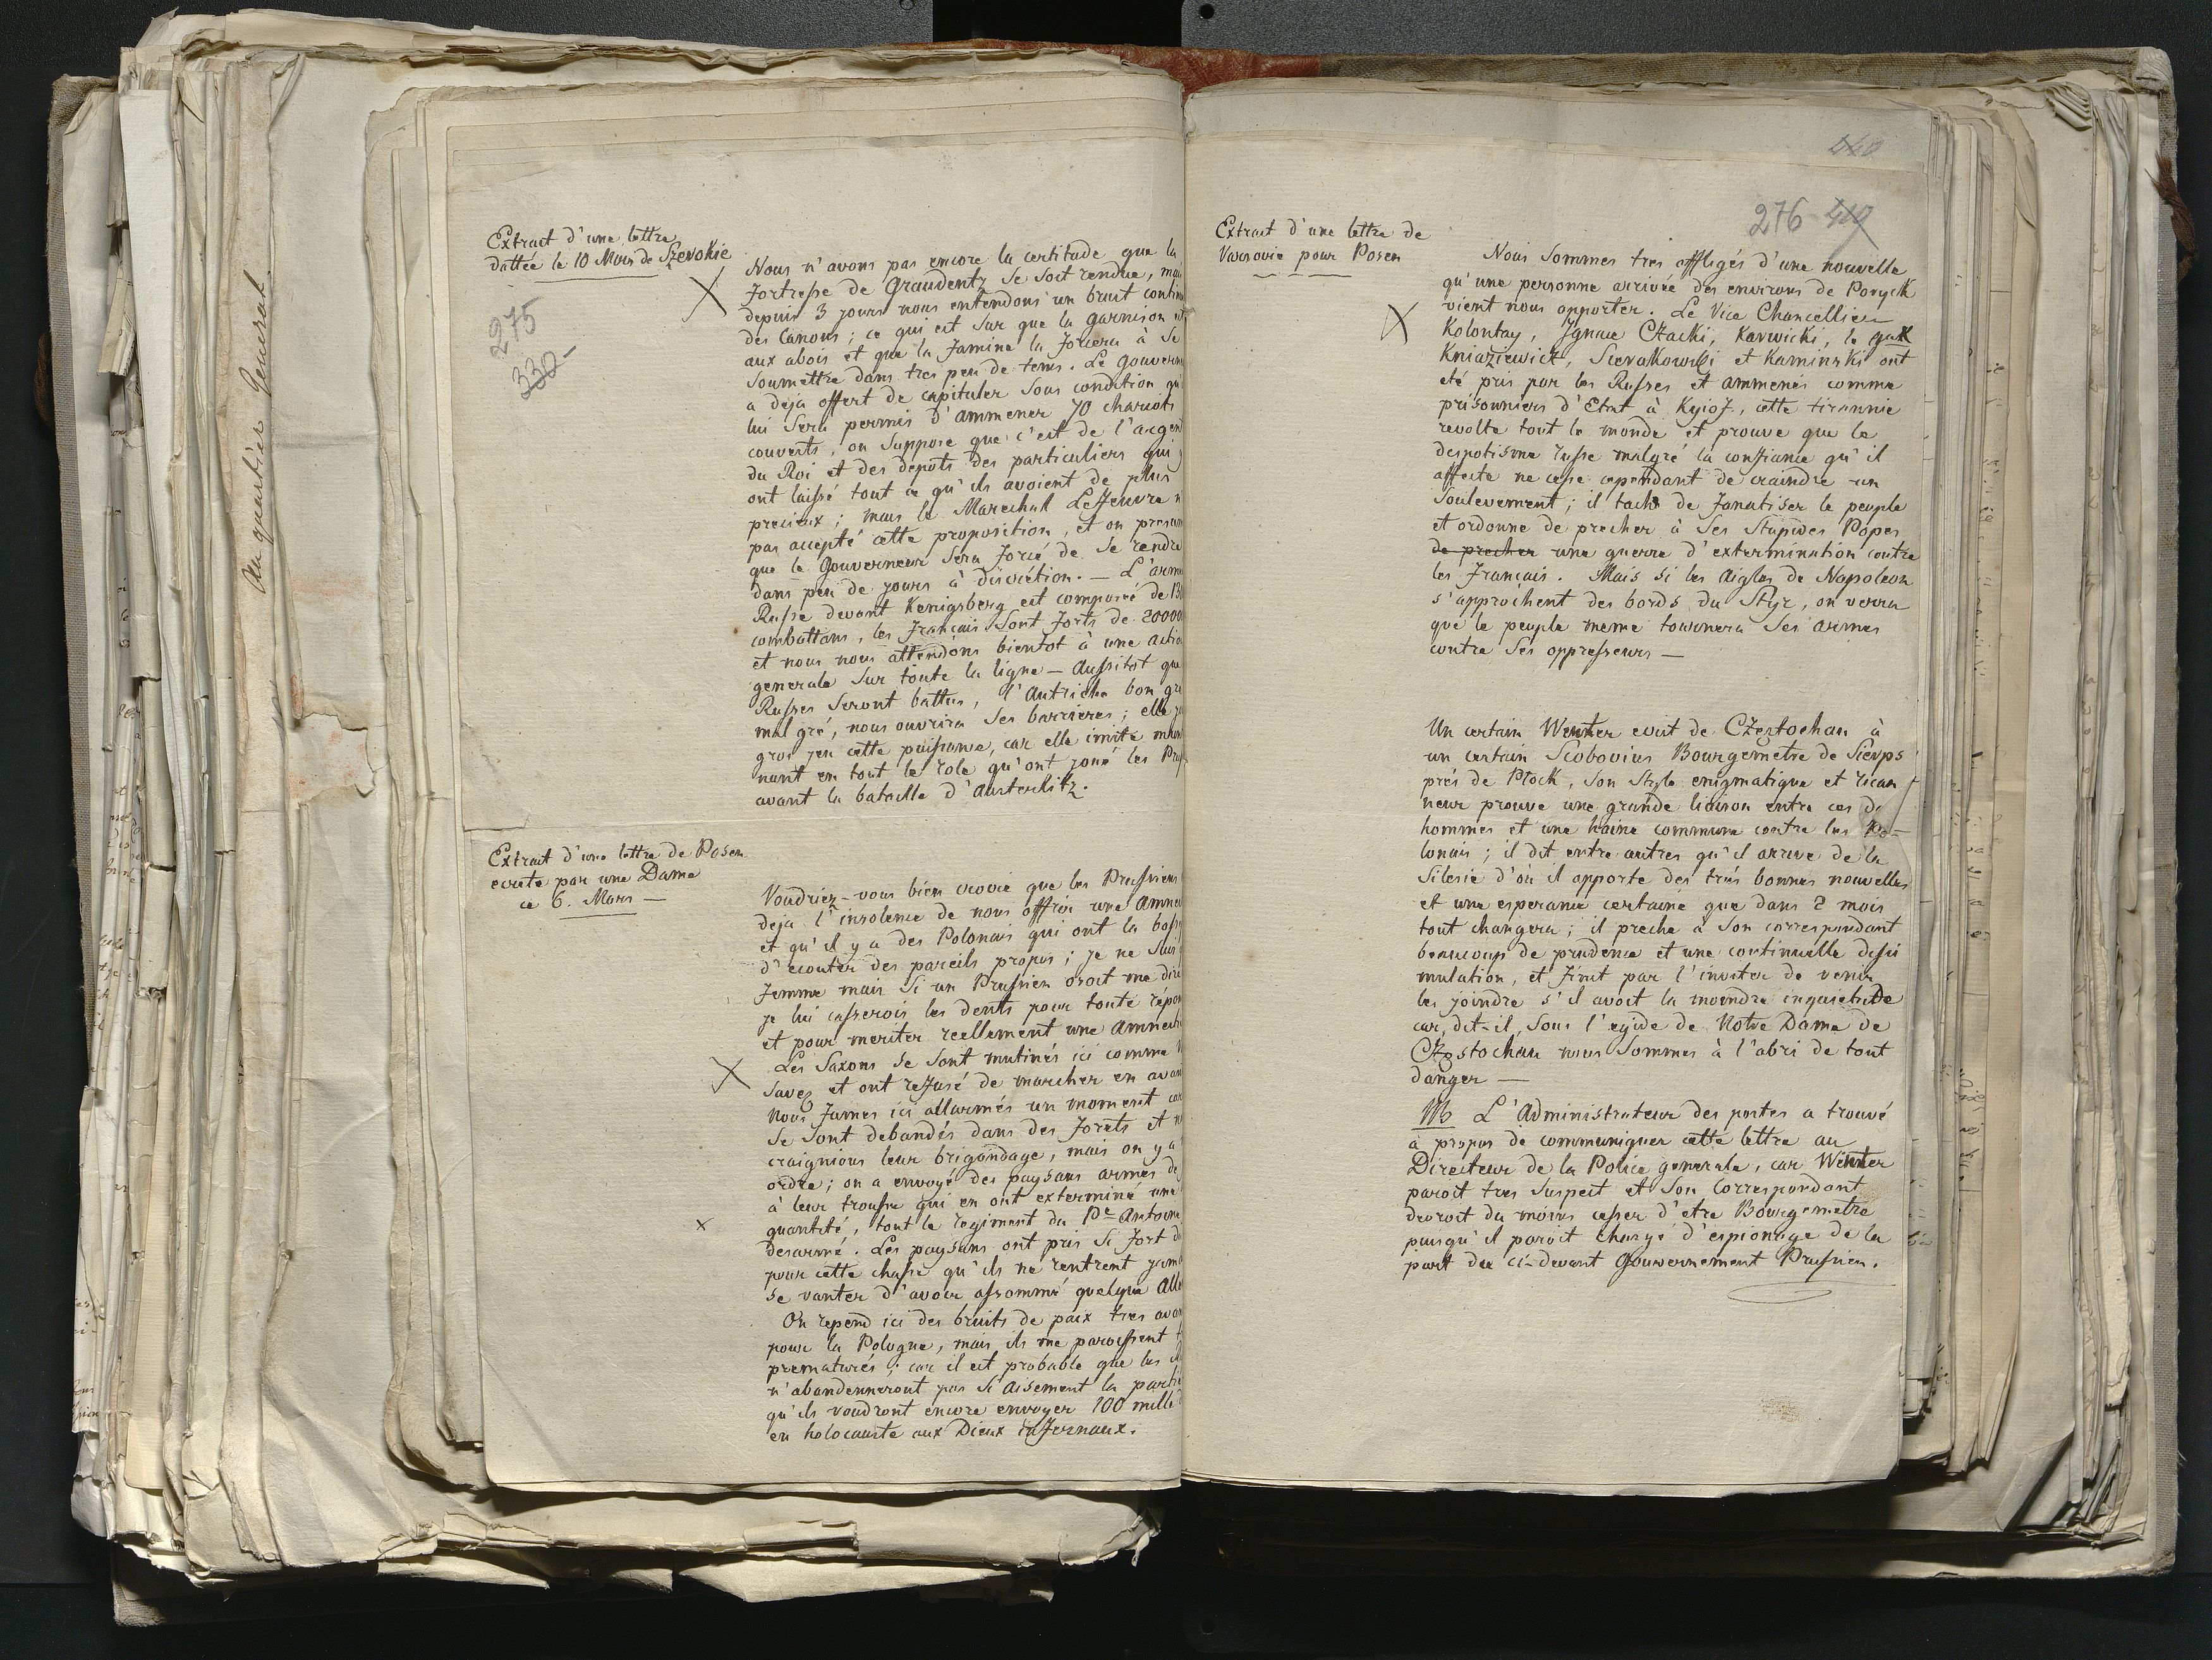 Au quartier General
Extrait d'une lettre
dattée le 10 Mars de Szevokie
275
330
Nous n'avons pas encore la certitude que la
fortresse de Graudentz se soit rendue, mai
depuis 3 jours nous entendons un bruit contin
des Canons; ce qui est sur que la garnison est
aux abois et que la famine la forcera à se
soumettre dans tres peu de tems. Le gouvern
a deja offert de capituler sous condition qu'
lui sera permis d'ammener 70 chariots
couverts, on suppose que c'est de l'argen
du Roi et des depots des particuliers qui y
ont laissé tout ce qu'ils avoient de plus
precieux; mais le Marechal Lefeuvre n
pas accepté cette proposition, et on presum
que le Gouverneur sera forcé de se rendre
dans peu de jours à discrétion. — L'arme
Russe devant Kenigsberg est composée de 13
combattans, les Français sont forts de 20000
et nous nous attendons bientot à une actio
generale sur toute la ligne — Aussitot que
Russes seront battus, l'Autriche bon gré
mal gré, nous ouvrira ses barrieres; elle jo
gros jeu cette puissance, car elle imite main
nant en tout le role qu'ont joué les Prus
avant la bataille d'Austerlitz.
Extrait d'une lettre de Posen
ecrite par une Dame
ce 6. Mars —
Voudriez-vous bien croire que les Prussiens
deja l'insolence de nous offrir une Amnes
et qu'il y a des Polonais qui ont la bass
d'ecouter des pareils propos; je ne suis
femme mais si un Prussien osoit me dire
je lui casserois les dents pour toute répon
et pour meriter reellement une Amnesti
Les Saxons se sont mutinés ici comme v
savez et ont refusé de marcher en avan
Nous fumes ici allarmés un moment car
se sont debandés dans des forets et n
craignions leur brigandage, mais on y a
ordre; on a envoyé des paysans armés de
à leur trousse qui en ont exterminé une
quantité, tout le regiment du Pce Antoine
desarmé. Les paysans ont pris si fort d
pour cette chasse qu'ils ne rentrent jam
se vanter d'avoir assommé quelque Alle
On repend ici des bruits de paix tres avan
pour la Pologne, mais ils me paroissent t
prematurés; car il est probable que les
n'abandonneront pas si aisement la partie
qu'ils voudront encore envoyer 100 mille
en holocauste aux Dieux infernaux.
440
276 440
Extrait d'une lettre de
Varsovie pour Posen
Nous sommes tres affligés d'une nouvelle
qu'une personne arrivée des environs de Poryck
vient nous apporter. Le Vice Chancellier
Kolontay, Ignace Czacki, Karwicki, le gnal
Kniaziewicz, Sierakowski et Kaminski ont
eté pris par les Russes et ammenés comme
prisonniers d'Etat à Kyiof, cette tirannie
revolte tout le monde et prouve que le
despotisme russe malgré la confiance qu'il
affecte ne cesse cependant de craindre un
soulevement; il tache de fanatiser le peuple
et ordonne de precher à ses stupides Popes
de precher une guerre d'extermination contre
les Français. Mais si les Aigles de Napoleon
s'approchent des bords du Styr, on verra
que le peuple meme tournera ses armes
contre ses oppresseurs —
Un certain Wenter ecrit de Czestochau à
un certain Scobovius Bourgemetre de Sierps
prés de Plock, son style enigmatique et rican
neur prouve une grande liaison entre ces de
hommes et une haine commune contre les Po-
lonais; il dit entre autres qu'il arrive de la
Silesie d'où il apporte des trés bonnes nouvelles
et une esperance certaine que dans 2 mois
tout changera; il preche à son correspondant
beaucoup de prudence et une continuelle dissi
mulation, et finit par l'inviter de venir
les joindre s'il avoit la moindre inquietude
car, dit-il, sous l'egide de Notre Dame de
Czestochau nous sommes à l'abri de tout
danger —
NB L'Administrateur des postes a trouvé
à propos de communiquer cette lettre au
Directeur de la Police generale, car Wenter
paroit tres suspect et son correspondant
devroit du moins cesser d'etre Bourgemetre
puisqu'il paroit chargé d'espionage de la
part du ci-devant Gouvernement Prussien.